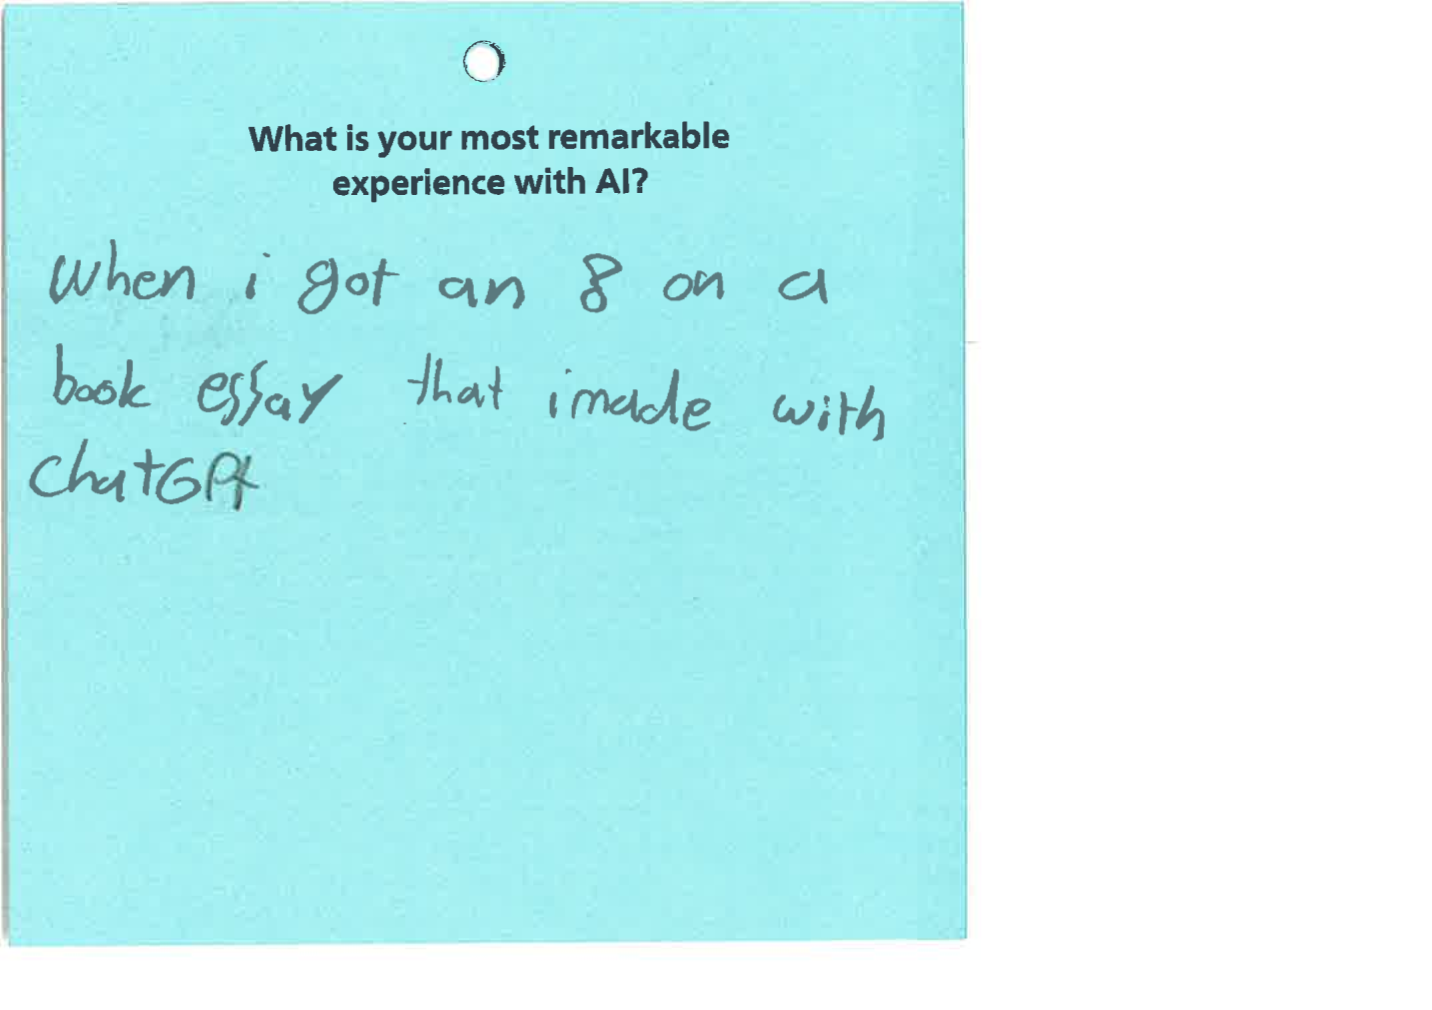 What is your most remarkable
experience with AI?
When i got an 8 on a
book essay that i made with
ChatGPt